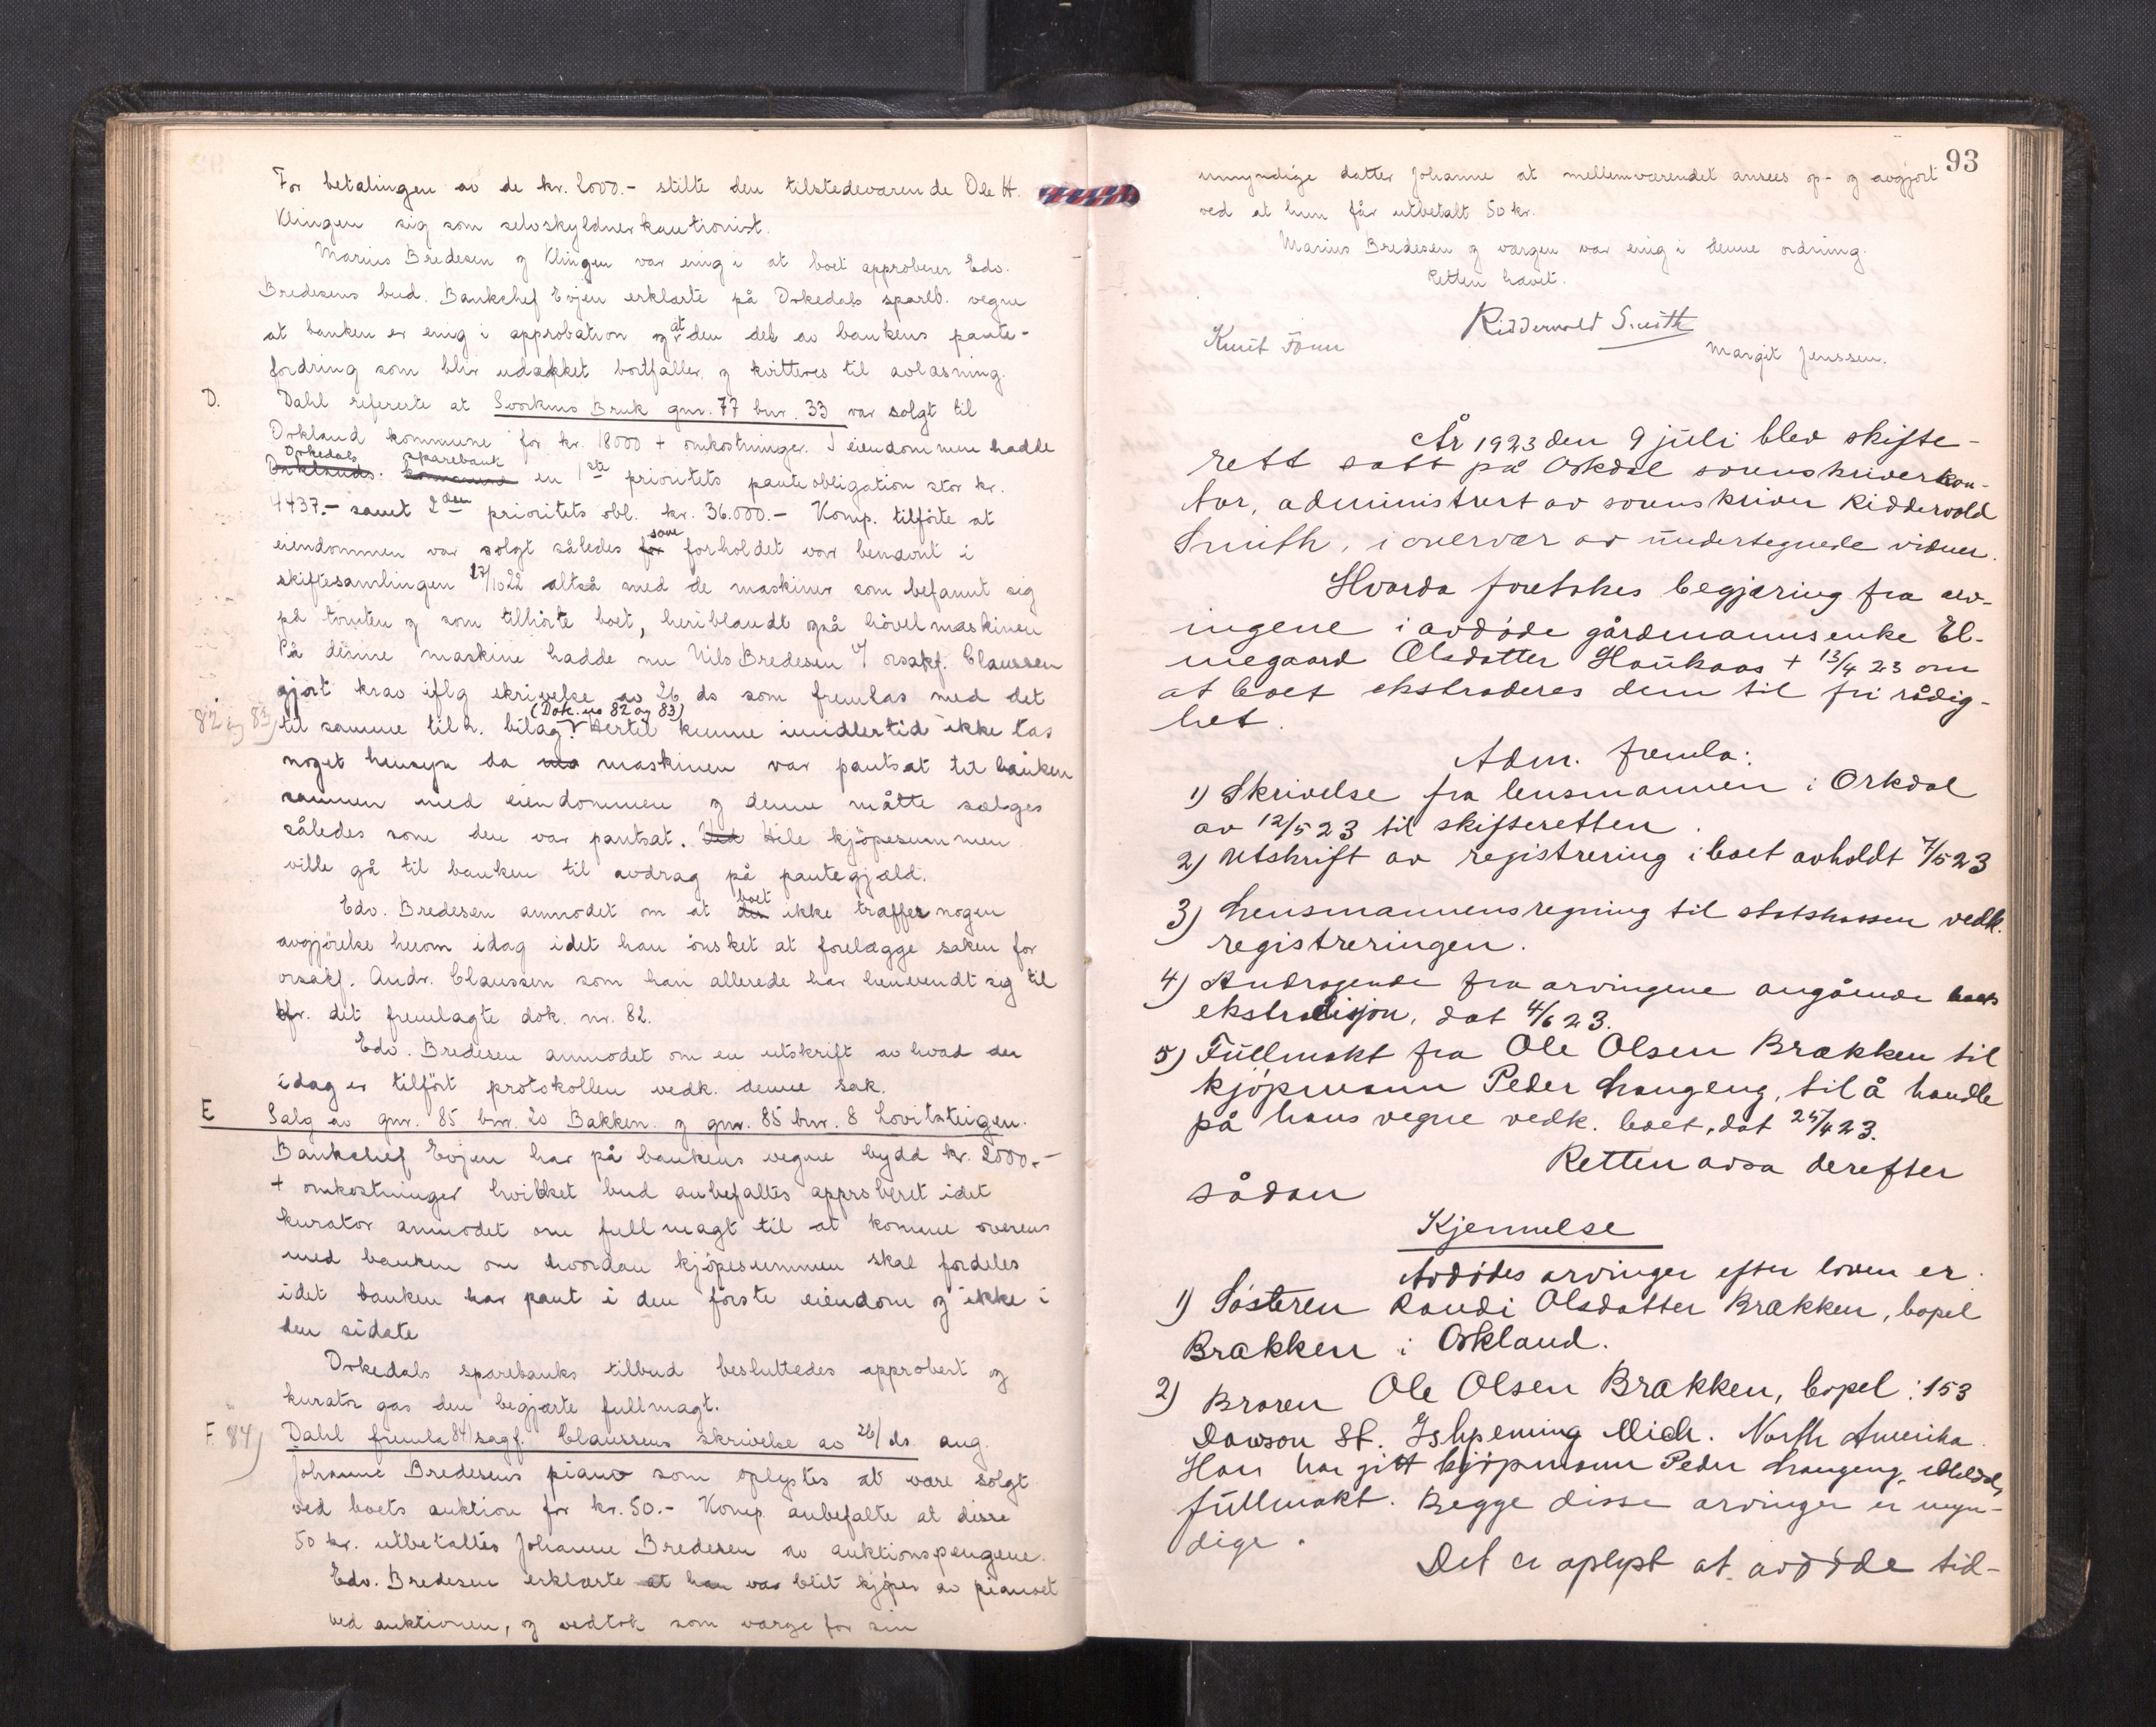 For betalingen av de kr. 2000.- stilte den tilstedeværende Ole H.
Klingen sig som selvskyldnerkautionist.
Marius Bredesen og Klingen var enig i at boet approberer Edv.
Bredesens bud. Bankchef Evjen erklærte på Orkedals spareb. vegne
at banken er enig i approbation og at den del av bankens pante-
fordring som blir udækket bortfaller og kvitteres til avlæsning.
D. Dahl refererte at Svorkmo Bruk gnr. 77 bnr. 33 var solgt til
Orkland kommune for kr. 18000 + omkostninger. I eiendommen hadde
Orkedals sparebank
Orklands kommune en 1ste prioritets panteobligation stor kr.
4437.- samt 2den prioritets obl. kr. 36.000.- Komp. tilförte at
eiendommen var solgt således for som forholdet var benævnt i
skiftesamlingen 27/10 22 altså med de maskiner som befannt sig
på tomten og som tilhörte boet, heriblandt også hövelmaskinen
På denne maskine hadde nu Nils Bredesen v/ orsakf. Claussen
gjort krav iflg skrivelse av 26 ds som fremlas med det
82 og 83) til samme tilh. bilag. (Dok. no 82 og 83) Hertil kunne imidlertid ikke tas
noget hensyn da ma maskinen var pantsat til banken
sammen med eiendommen og denne måtte sælges
således som den var pantsat. Ved Hele kjöpesummen
ville gå til banken til avdrag på pantegjæld.
Edv. Bredesen anmodet om at der boet ikke traffer nogen
avgjörelse herom idag idet han önsket at forelægge saken for
orsakf. Andr. Claussen som han allerede har henvendt sig til
kfr. det fremlagte dok. nr. 82.
Edv. Bredesen anmodet om en utskrift av hvad der
idag er tilfört protokollen vedk. denne sak.
E Salg av gnr. 85 bnr. 20 Bakken og gnr. 85 bnr. 8 Lovitsteigen.
Bankchef Evjen har på bankens vegne bydd kr. 2000.-
+ omkostninger hvilket bud anbefaltes approberet idet
kurator anmodet om fullmagt til at komme overens
med banken om hvordan kjöpesummen skal fordeles
idet banken har pant i den förste eiendom og ikke i
den sidste
Orkedals sparebanks tilbud besluttedes approbert og
kurator gas den begjærte fullmagt.
F. 84) Dahl fremla 84) sagf. Claussens skrivelse av 26/ ds. ang.
Johanne Bredesens piano som oplystes at være solgt
ved boets auktion for kr. 50.- Komp. anbefalte at disse
50 kr. utbetaltes Johanne Bredesen av auktionspengene.
Edv. Bredesen erklærte at han var blit kjöper av pianoet
ved auktionen, og vedtok som værge for sin
93
umyndige datter Johanne at mellemværendet ansees op- og avgjort
ved at hun får utbetalt 50 kr.
Marius Bredesen og værgen var enig i denne ordning.
Retten hævet.
Ridderwold Smith
Knut Tönn
Margit Jenssen.
År 1923 den 9 juli blev skifte-
rett satt på Orkdal sorenskriverkon-
tor, administrert av sorenskriver Riddervold
Smith, i overvær av undertegnede vidner.
Hvorda foretokes begjæring fra arv-
ingene i avdøde gårdmannsenke El-
megaard Olsdatter Haukaas + 13/4 23 om
at boet ekstraderes dem til fri rådig-
het.
Adm. fremla:
1) Skrivelse fra lensmannen i Orkdal
av 12/5 23 til skifteretten.
2) Utskrift av registrering i boet avholdt 7/5 23
3) Lensmannens regning til statskassen vedk.
registreringen.
4) Andragende fra arvingene angående boets
ekstradisjon, dat 4/6 23.
5) Fullmakt fra Ole Olsen Brækken til
kjøpmann Peder Langeng, til å handle
på hans vegne vedk. boet, dat 25/4 23.
Retten avsa derefter
sådan
Kjennelse
Avdødes arvinger efter loven er.
1) Søsteren Randi Olsdatter Brækken, bopel
Brækken i Orkland.
2) Broren Ole Olsen Brækken, bopel: 153
Dawson St. Ishpeming Mich. North Amerika
Han har gitt kjøpmann Peder Langeng, Meldal,
fullmakt. Begge disse arvinger er myn-
dige.
Det er oplyst at avdøde tid-